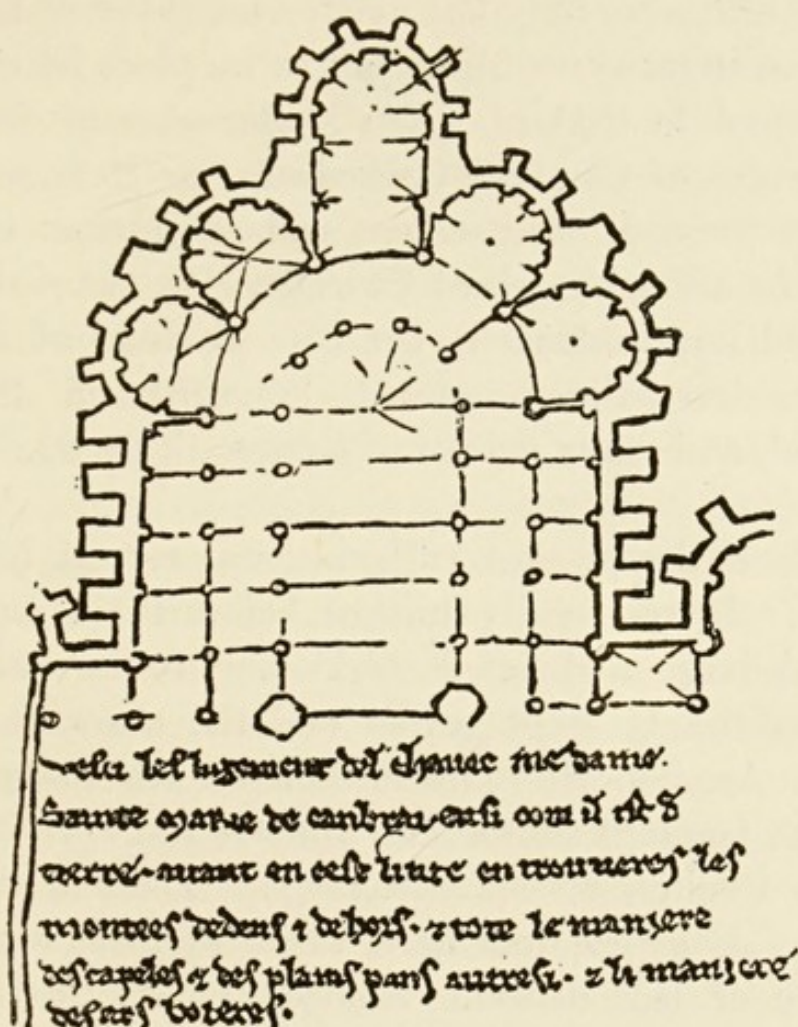 Vesci lesligement del chavec me dame
Sainte marie de canbrai ensi com il est de
terre. avant en cest livre en trouveres les
montees dedens & dehors. & tote le maniere
des capeles & des plains pans autresi. & li maniere
des ars boteres.